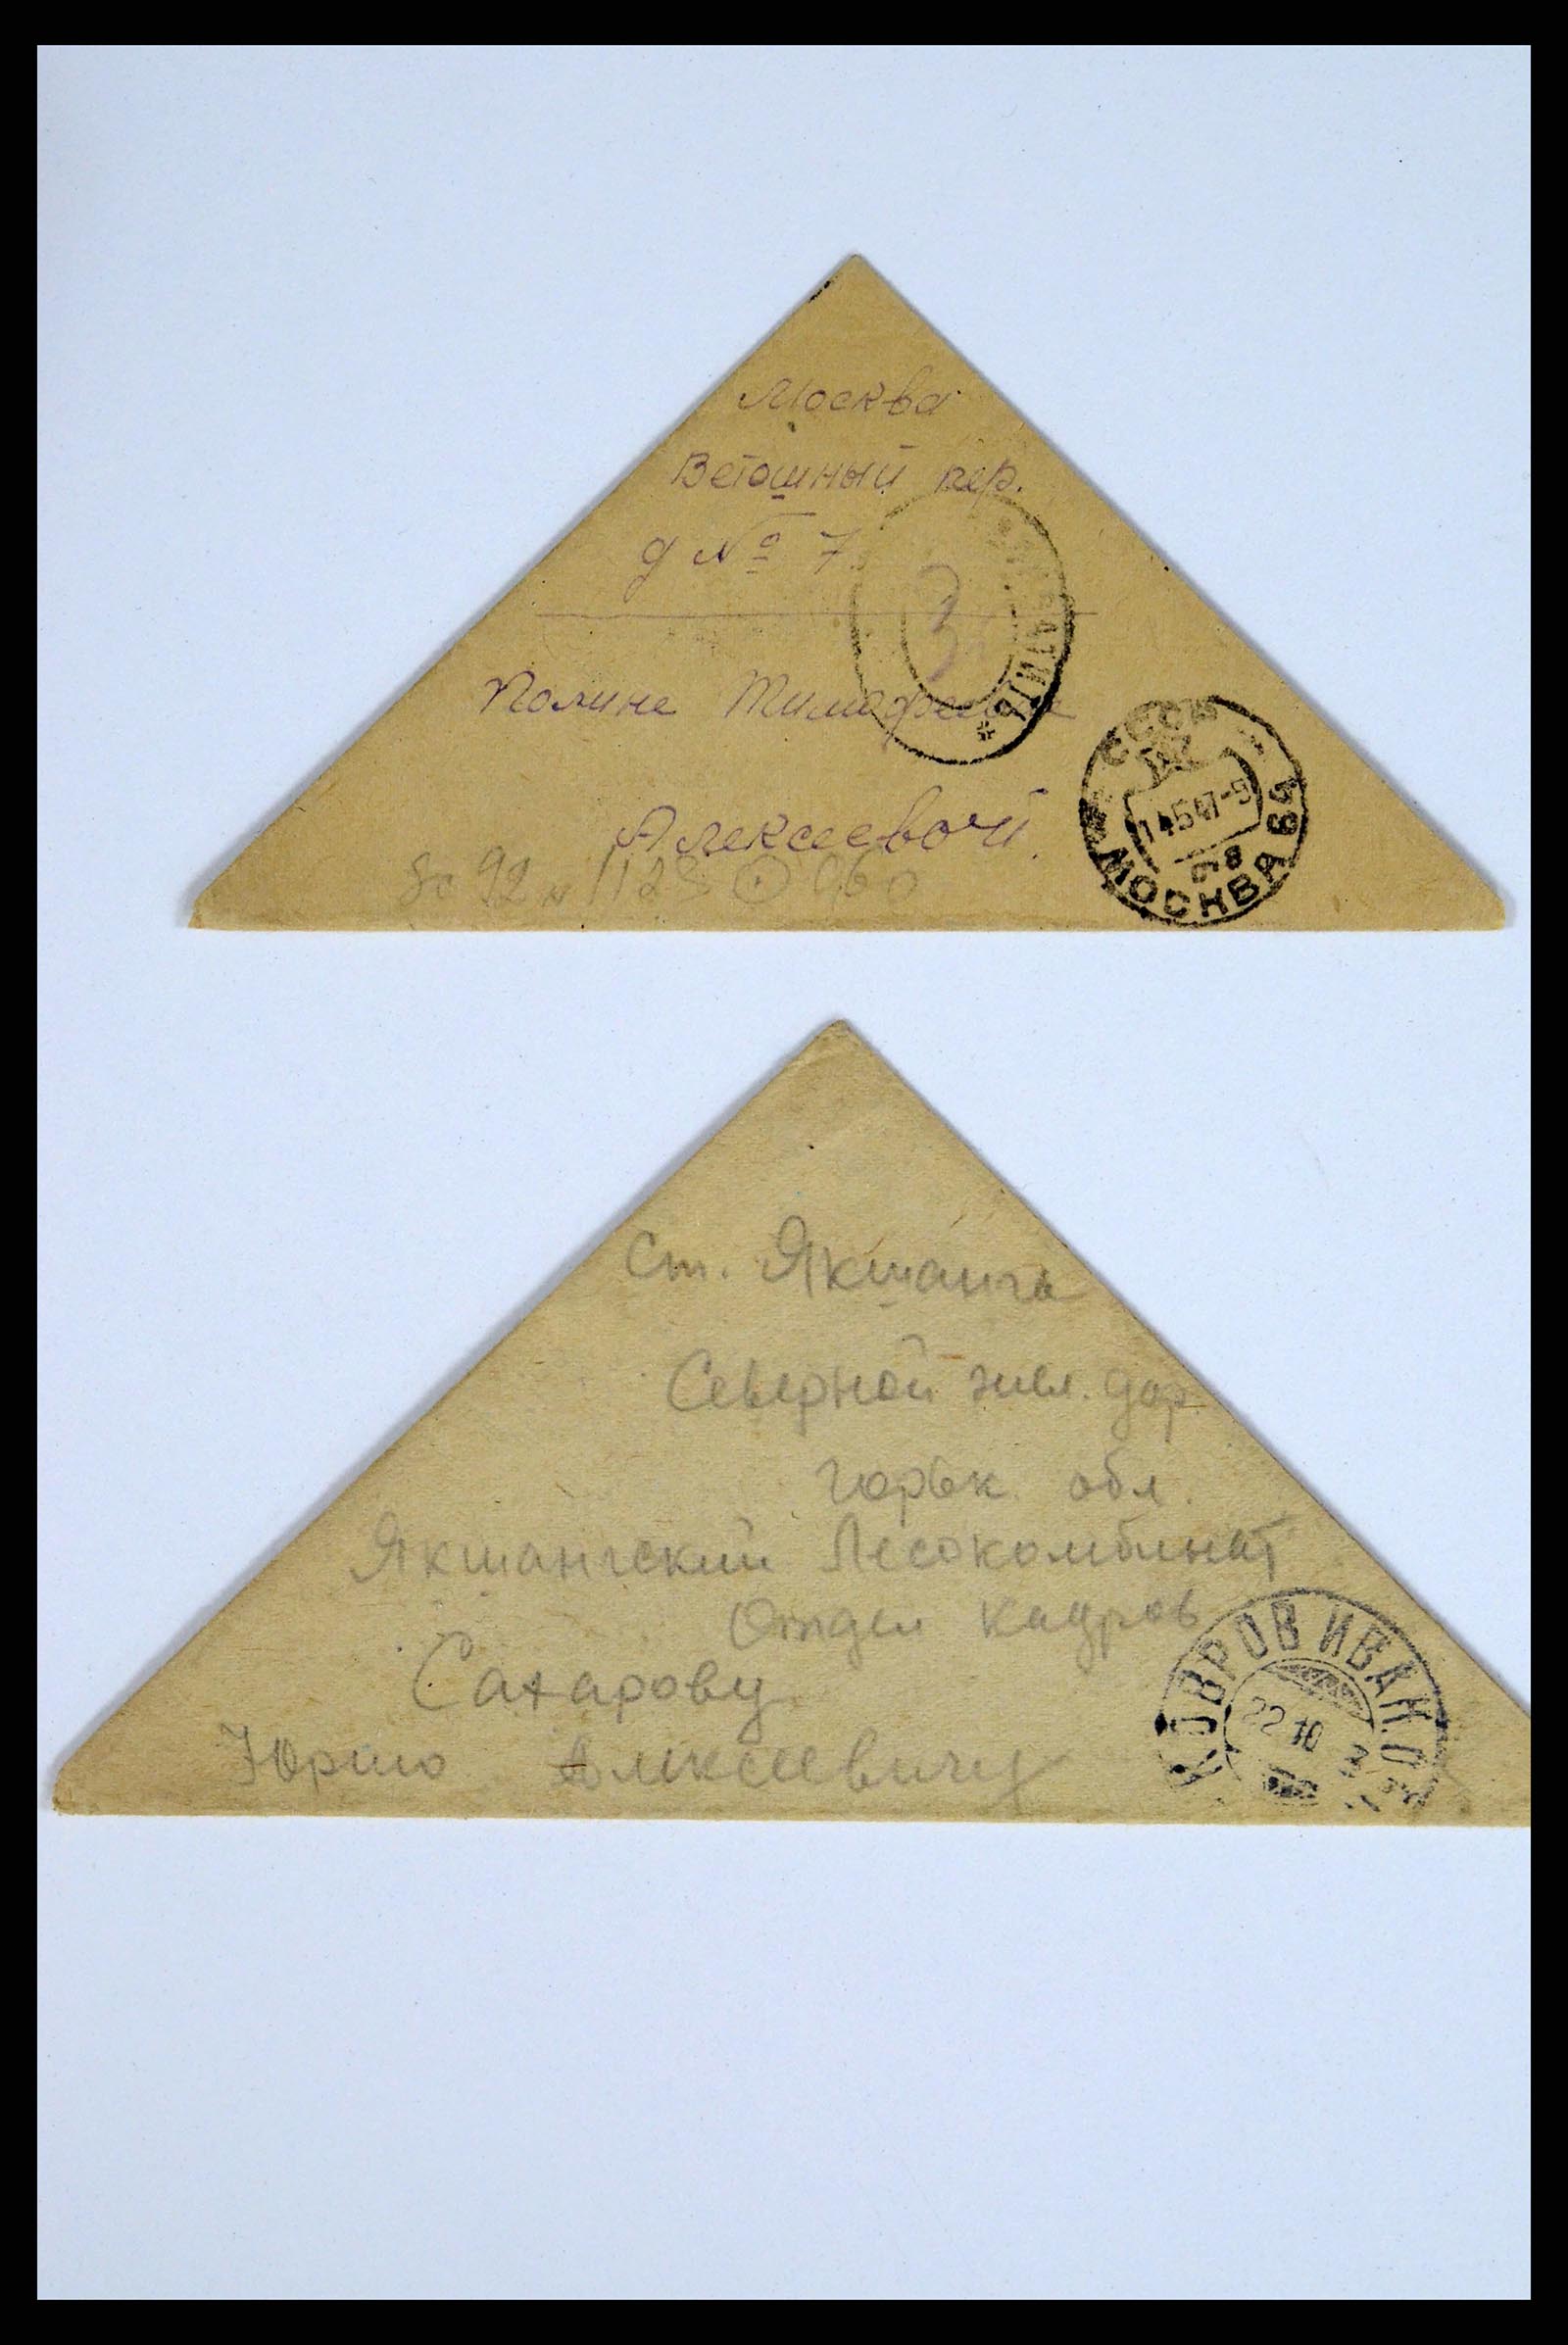 Москва
Ветошный пер.
д № 7.
Полине Тимофеевне
Алексеевой.
СССР
14547-9
МОСКВА 64
Ст. Якшанга
Северной жел. дор.
Горьк. обл.
Якшангский Лесокомбинат
Отдел кадров
Сахарову
Юрию Алексеевичу
КОВРОВ ИВАН.О
22 10